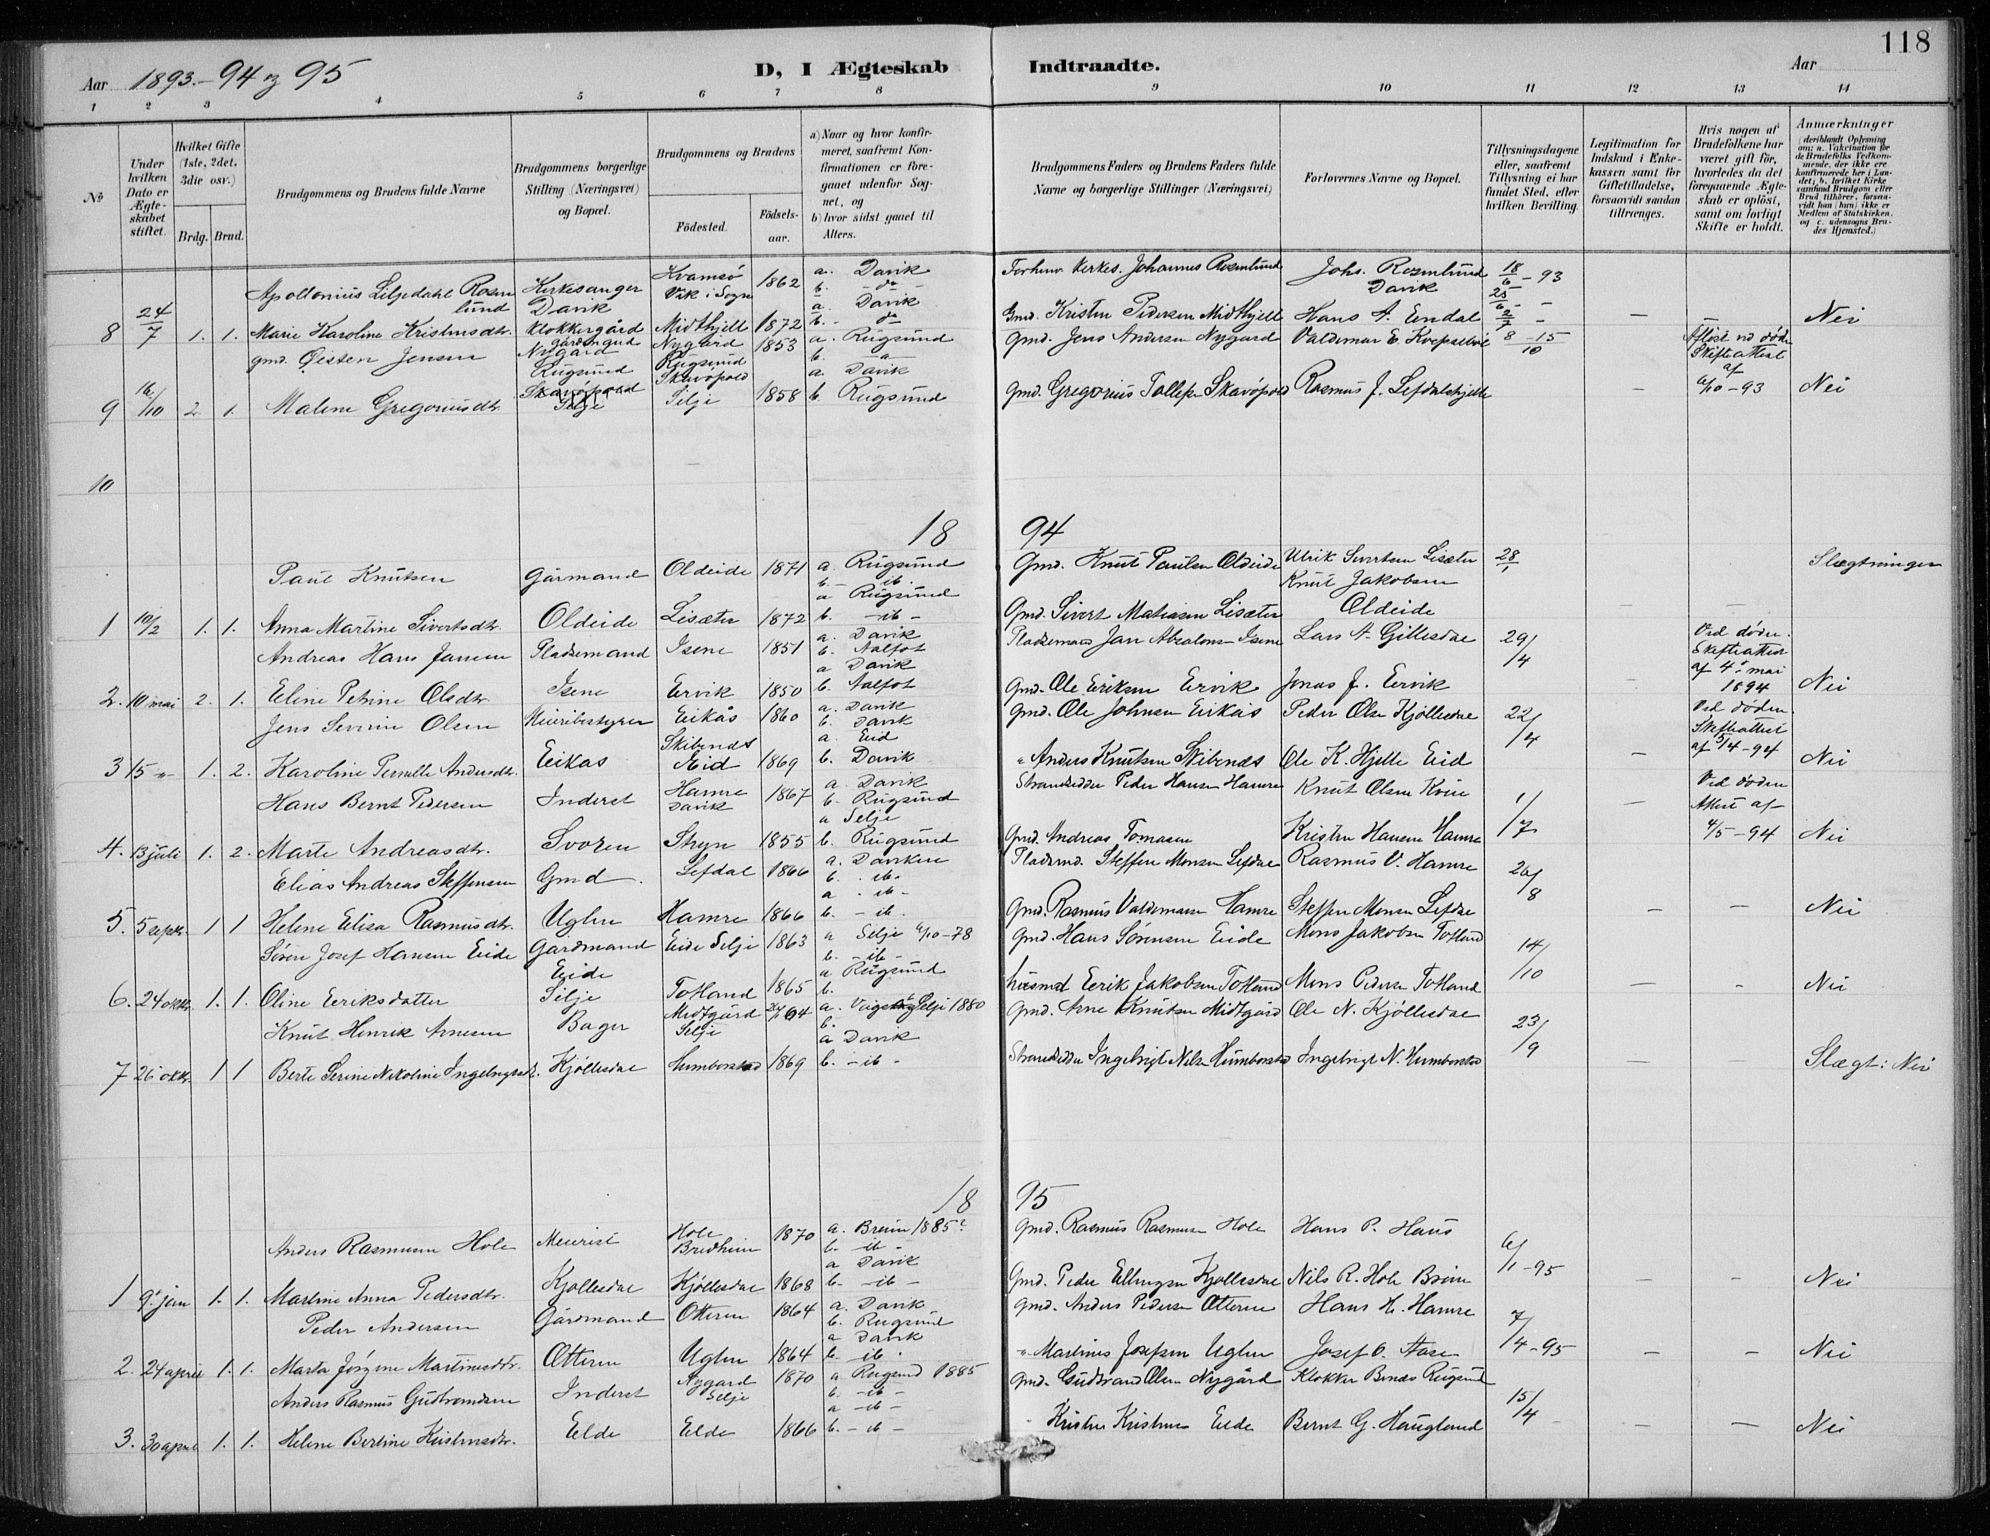 118
Aar 1893.-94 og 95
D, I Ægteskab Indtraadte.
Aar
1 2 3 4 5 6 7 8 9 10 11 12 13 14
No
Under hvilken Dato er Ægteskabet stiftet.
Hvilket Gifte (1ste, 2det, 3die osv.)
Brdg. Brud.
Brudgommens og Brudens fulde Navne
Brudgommens borgerlige Stilling (Næringsvei) og Bopæl.
Brudgommens og Brudens
Födested.
Födselsaar.
a) Naar og hvor konfirmeret, saafremt Konfirmationen er foregaaet udenfor Sognet, og
b) hvor sidst gaaet til Alters.
Brudgommens Faders og Brudens Faders fulde Navne og borgerlige Stillinger (Næringsvei)
Forlovernes Navne og Bopæl.
Tillysningsdagene eller, saafremt Tillysning ei har fundet Sted, efter hvilken Bevilling.
Legitimation for Indskud i Enkekassen samt for Giftetilladelse, forsaavidt saadan tiltrænges.
Hvis nogen af Brudefolkene har været gift för, hvorledes da det foregaaende Ægteskab er oplöst, samt om lovligt Skifte er holdt.
Anmærkninger (deriblandt Oplysning om: a. Vakcination for de Brudefolks Vedkommende, der ikke ere konfirmerede her i Landet; b. hvilket Kirkesamfund Brudgom eller Brud tilhörer, forsaavidt han (hun) ikke er Medlem af Statskirken, og c. udensogns Brudes Hjemsted.)
Apollonius Liljedahl Rosenlund Kirkesanger Davik Kvamsö Vik i Sogn 1862 a. Davik b. - do - Forhenv. Kirkes. Johannes Rosenlund Johs. Rosenlund Davik 18/6 - 93
8 24/7 1. 1. Marie Karoline Kristensdtr. Klokkergård Midthjell 1872 a. Davik b. - do Gmd. Kristen Pedersen Midthjell Hans A. Endal 25/6 - 2/7 - - Nei
gmd. Øisten Jensen gårdmand Nygård Rugsund Nygård Rugsund 1853 a. Rugsund b. - a - gmd. Jens Andersen Nygård Valdemar E 8 - 15/10 Afløst ved døden Skifteattest af
9 16/10 2. 1. Malene Gregoriusdtr. Skavøpold Selje Skavøpold Selje 1858 a Davik b Rugsund gmd. Gregorius Tollefsen Skavøpold Rasmus J. Lefdalshjelle - 6/10 - 93 Nei
10
18 94
Paul Knutsen Gårmand Oldeide 1871 a. Rugsund b. - ib. Gmd. Knut Paulsen Oldeide Ulrik Sivertsen Lisæter Knut Jakobsen 28/1 Slægtninger
1 10/2 1. 1. Anna Martine Sivertsdtr. Oldeide Lisæter 1872 a Rugsund b. - ib - Gmd. Sivert Matiasen Lisæter Oldeide - -
Andreas Hans Jansen Pladsemand Isene 1851 a. Davik b. Aalfot Pladsemand Jan Absalons. Isene Lars A. Gillesdal 29/4 Ved døden. Skifteattest af 4de mai 1894
2. 10 mai 2. 1. Eline Petrine Olsdtr. Isene Ervik 1850 a Davik b. Aalfot Gmd. Ole Eriksen Ervik Jonas J. Ervik Nei
Jens Severin Olsen Meieribestyrer Eikås 1860 a. Davik b. Davik gmd. Ole Johnsen Eikås Peder Olsen Kjøllesdal 22/4 Ved døden. Skifteattest af 5/4-94
3 15 " 1. 2. Karoline Pernelle Andersdtr. Eikås Skibenes Eid 1869 a. Eid b. Davik " Anders Knutsen Skibenes Ole K. Hjelle Eid - Nei
Hans Bernt Pedersen Inderst Hamre Davik 1867 a. Davik b. Rugsund Strandsidder Peder Hansen Hamre Knut Olsen 1/7 - Ved døden Attest af
4. 13 juli 1. 2. Marte Andreasdtr. Svoren Stryn 1855 a Selje b. Rugsund Gmd. Andreas Tomasen Kristen Hansen Hamre 4/5 - 94 Nei
Elias Andreas Steffensen Gmd. Lefdal 1866 a. Daviken b. - ib - Pladsemd. Steffen Monsen Lefdal Rasmus V. Hamre 26/8
5. 5 septr. 1 1 Helene Elisa Rasmusdtr. Uglen Hamre 1866 a - ib - b. - ib. Gmd. Rasmus Valdemarsen Hamre Steffen Monsen Lefdal - - Nei
Søren Josef Hansen Eide Gårdmand Eide Selje 1863 a Selje 6/10-78 b. - ib - gmd. Hans Sørensen Eide Mons Jakobsen Totland 14/10
6. 24 oktr. 1. 1. Oline Eriksdatter Eide Selje Totland 1865 a Rugsund b. husmd Eerik Jakobsen Totland Mons Pedersen Totland - - Nei
Knut Henrik Arnesen Bager Midtgård Selje a. Selje 1880 b. gmd. Arne Knutsen Midtgård Ole N. Kjøllesdal 23/9
7 26 oktr. 1 1 Berte Serine Nikoline Ingebrigtsd. Kjøllesdal Humborstad 1869 a Davik b. - ib - Strandsidder Ingebrigt Nilsen Humborstad Ingebrigt N. Humborstad - Slægt: Nei
18 95
Anders Rasmusen Hole Meierist Hole Bredheim 1870 a. Breim 1885 b. - ib - gmd. Rasmus Rasmusen Hole Hans P. Haus 6/1 - 95
1 9. jan 1. 1. Martine Anna Pedersdtr. Kjøllesdal Kjøllesdal 1868 a Davik b. - ib - Gmd. Peder Ellingsen Kjøllesdal Nils R. Hole Breim - - Nei
Peder Andersen Gårdmand Otteren 1864 a. Davik b. Rugsund gmd. Anders Pedersen Otteren Hans H. Hamre 7/4 - 95
2. 24 april 1. 1. Marta Jørgine Martinusdtr. Otteren Uglen 1864 a Davik b. - ib. " Martinus Josefsen Uglen Josef O. Aase - - Nei
Anders Rasmus Gudbrandsen Inderst Nygård Selje 1870 a Rugsund 1885 b. - ib - gmd. Gudbrand Olsen Nygård Klokker Benæs Rugsund 15/4
3. 30 april 1. 1. Helene Bertine Kristensdtr. Elde Elde 1866 a - ib - b. - ib - " Kristen Kristensen Elde Bernt G. Haugland - - Nei